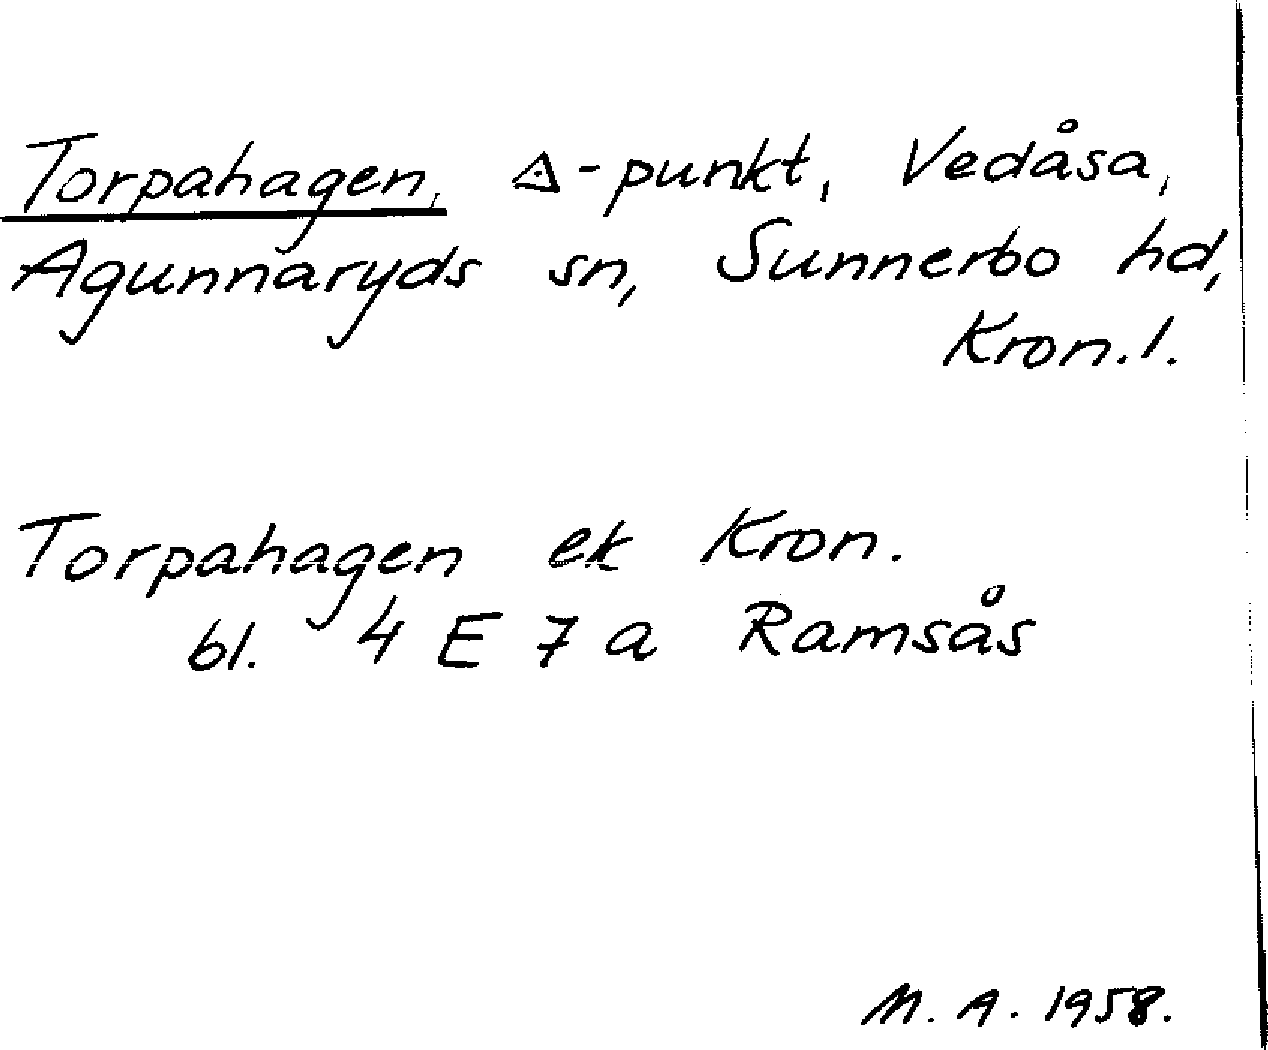 Torpahagen, △-punkt, Vedåsa,
Agunnaryds sn, Sunnerbo hd,
Kron.l.
Torpahagen ek Kron.
bl. 4 E 7 a Ramsås
M. A. 1958.